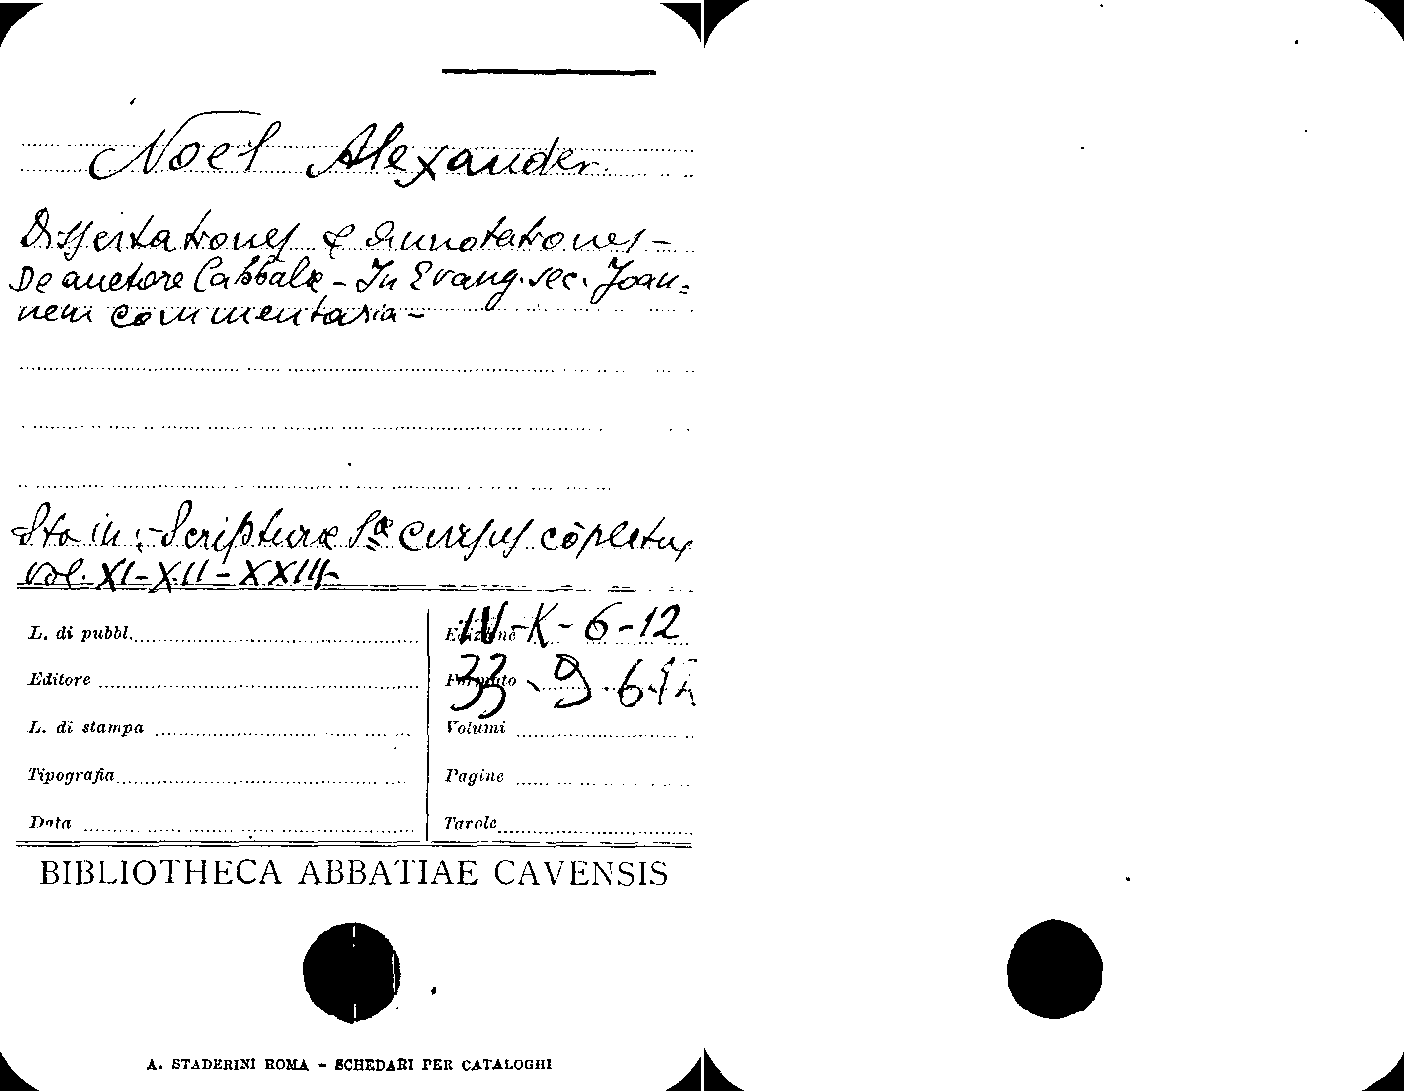 Noel Alexander.
Dissertationes & Annotationes -
De auctore Cabbalæ - In Evang. sec. Joan=
nem commentaria -
Sta in: - Scripturæ Sæ Cursus cōpletus
vol. XI - XII - XXIII -
L. di pubbl.
Edizione IV-K-6-12
Editore
Formato 33-9-6
L. di stampa
Volumi
Tipografia
Pagine
Data
Tavole
BIBLIOTHECA ABBATIAE CAVENSIS
A. STADERINI ROMA - SCHEDARI PER CATALOGHI